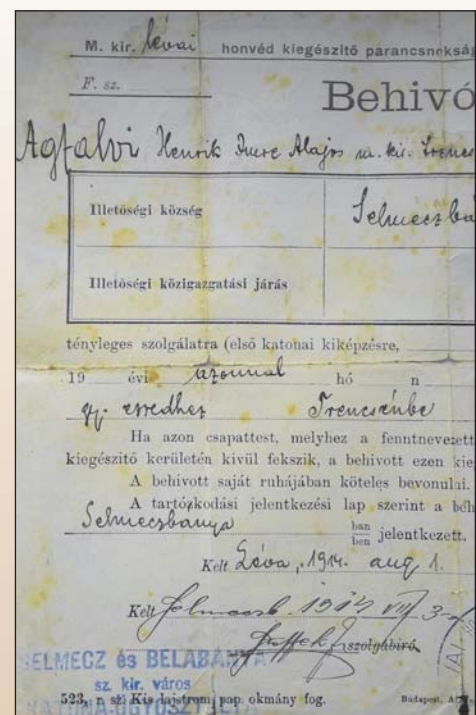 M. kir. lévai honvéd kiegészítő parancsnokság
F. sz.
Behivó
Agfalvi Henrik Imre Alajos m. kir. Trencs
Illetőségi község Selmeczbá
Illetőségi közigazgatási járás
tényleges szolgálatra (első katonai kiképzésre,
19 évi azonnal hó n
gy. ezredhez Trencsénbe
Ha azon csapattest, melyhez a fenntnevezett
kiegészítő kerületén kivül fekszik, a behivott ezen kie
A behivott saját ruhájában köteles bevonulni.
A tartózkodási jelentkezési lap szerint a beh
Selmeczbanya ban ben jelentkezett.
Kelt Léva, 1914. aug 1.
Kelt Selmeczb. 1914 VIII 3-
szolgabiró.
SELMECZ és BÉLABÁNYA
sz. kir. város
KATONA-ÜGYOSZTÁLYA
523. r. sz. Kis lajstrom pap. okmány fog. Budapest,